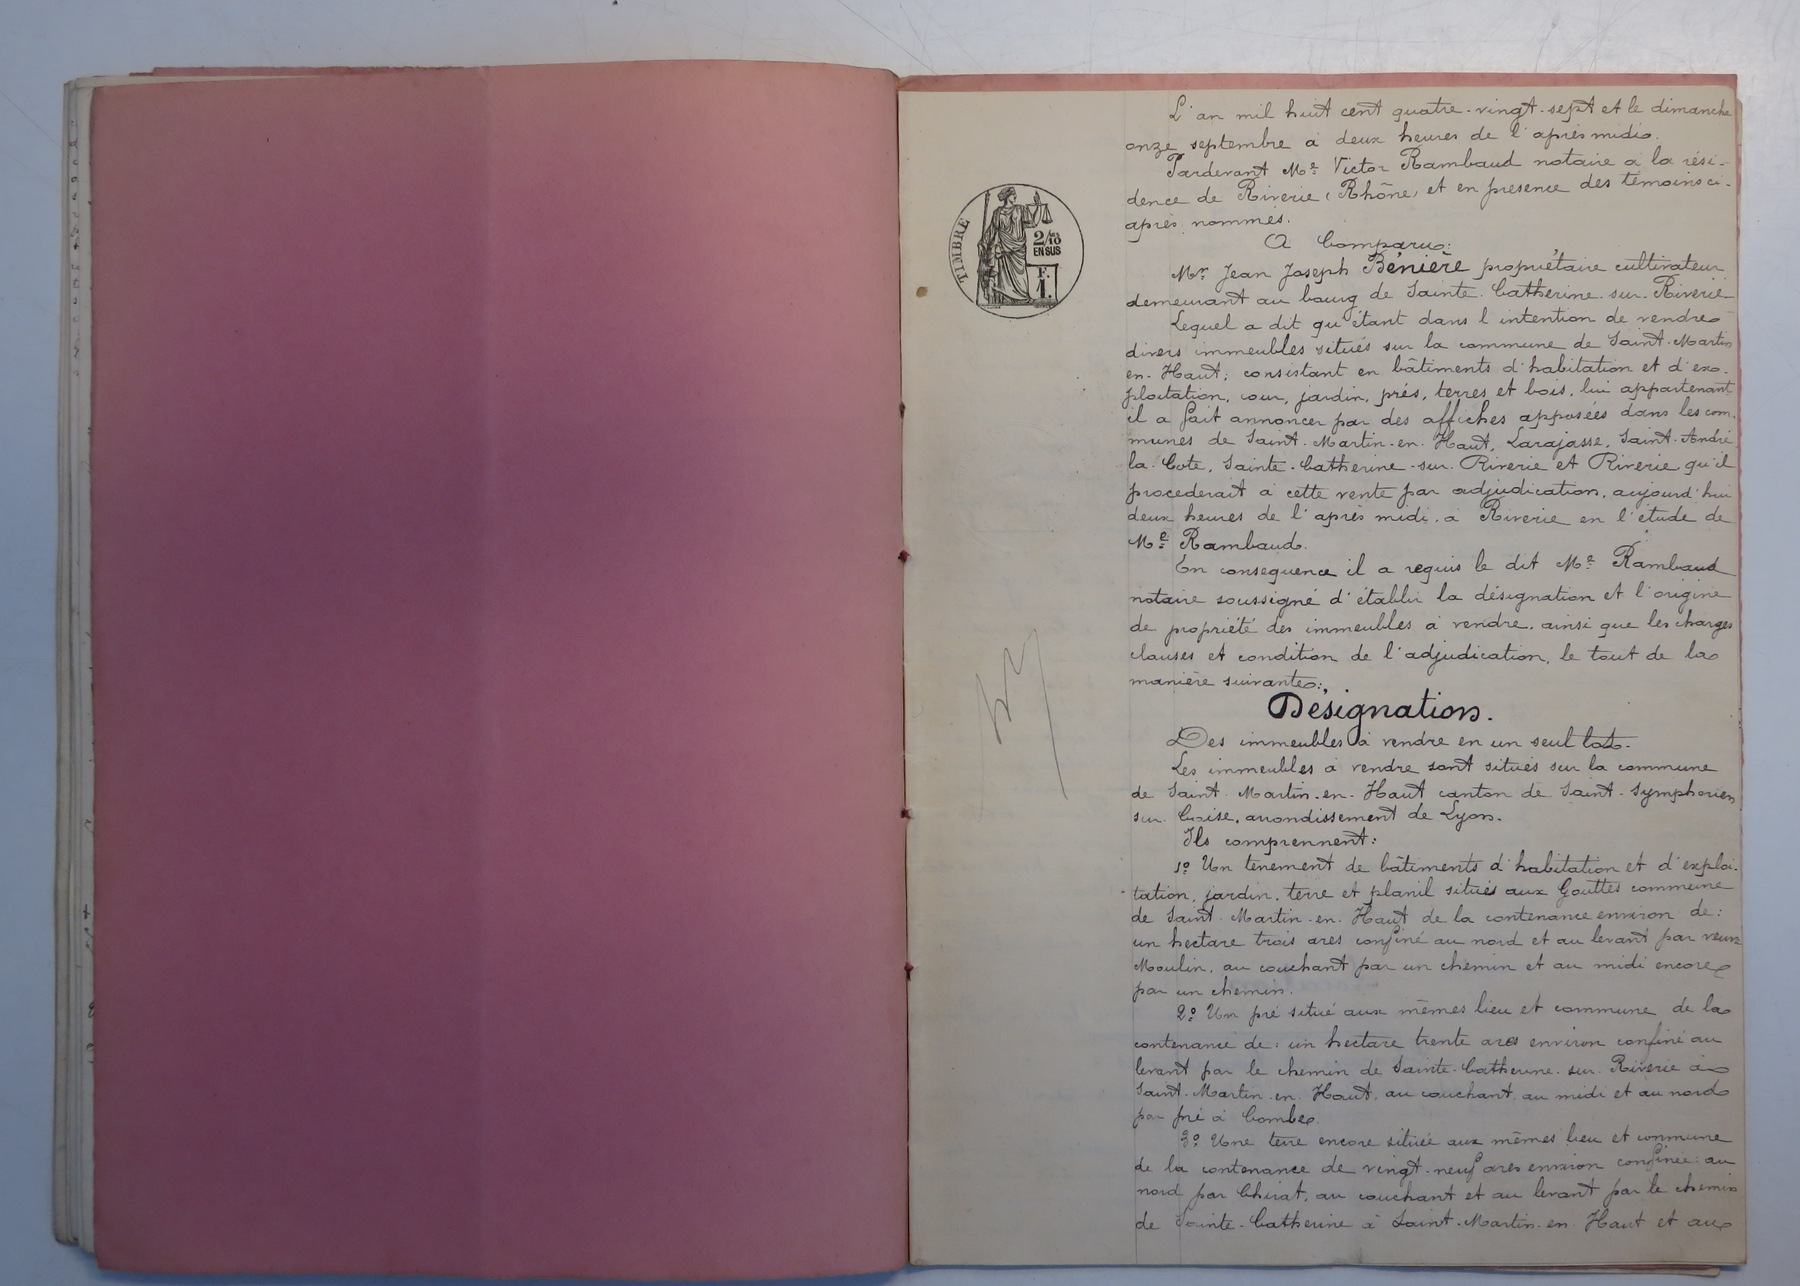 TIMBRE
2/10
EN SUS
F.
1.
L'an mil huit cent quatre-vingt-sept et le dimanche
onze septembre à deux heures de l'après midi.
Pardevant Me Victor Rambaud notaire à la rési-
dence de Riverie (Rhône) et en présence des témoins ci-
après nommés.
A Comparu:
Mr Jean Joseph Bénière propriétaire cultivateur
demeurant au bourg de Sainte-Catherine-sur-Riverie
Lequel a dit qu'étant dans l'intention de vendre
divers immeubles situés sur la commune de Saint-Martin
en-Haut; consistant en bâtiments d'habitation et d'ex-
ploitation, cour, jardin, prés, terres et bois, lui appartenant
il a fait annoncer par des affiches apposées dans les com-
munes de Saint-Martin-en-Haut, Larajasse, Saint-André
la-Cote, Sainte-Catherine-sur-Riverie et Riverie qu'il
procederait à cette vente par adjudication, aujourd'hui
deux heures de l'après midi, à Riverie en l'étude de
Me Rambaud.
En consequence il a requis le dit Me Rambaud
notaire soussigné d'établir la désignation et l'origine
de propriété des immeubles à vendre, ainsi que les charges
clauses et condition de l'adjudication, le tout de la
manière suivante:
Désignation.
Des immeubles à vendre en un seul lot.
Les immeubles à vendre sont situés sur la commune
de Saint-Martin-en-Haut canton de Saint-Symphorien
sur-Coise, arrondissement de Lyon.
Ils comprennent:
1º Un tenement de bâtiments d'habitation et d'exploi-
tation, jardin, terre et planil situés aux Gouttes commune
de Saint-Martin-en-Haut de la contenance environ de:
un hectare trois ares confiné au nord et au levant par veuve
Moulin, au couchant par un chemin et au midi encore
par un chemin.
2º Un pré situé aux mêmes lieu et commune de la
contenance de: un hectare trente ares environ confiné au
levant par le chemin de Sainte-Catherine-sur-Riverie à
Saint-Martin-en-Haut, au couchant, au midi et au nord
par pré à Combe.
3º Une terre encore située aux mêmes lieu et commune
de la contenance de vingt-neuf ares environ confinée: au
nord par Chirat, au couchant et au levant par le chemin
de Sainte-Catherine à Saint-Martin-en-Haut et au